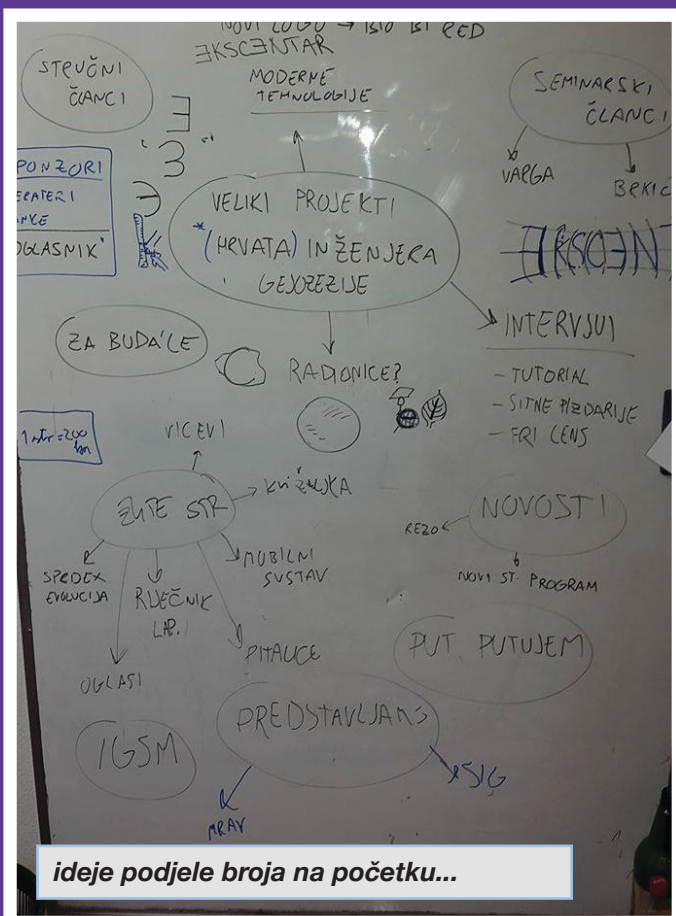 NOVI LOGO → BIO BI RED
EKSCENTAR
STRUČNI
ČLANCI
MODERNE
TEHNOLOGIJE
SEMINARSKI
ČLANCI
VARGA
BRKIĆ
PONZORI
ERATERI
NKE
OGLASNIK
VELIKI PROJEKTI
*(HRVATA) INŽENJERA
GEOZEZIJE
EKSCEN
ZA BUDALE
RADIONICE?
INTERVJUI
- TUTORIAL
- SITNE PIZDARIJE
- FRI LENS
1 str = 200
kn
VICEVI
ŽUTE STR
KVIŽALJKA
MOBILNI
SUSTAV
SPEDEX
EVOLUCIJA
RIJEČNIK
LAP.
PITALICE
OGLASI
NOVOSTI
REZO
NOVI ST. PROGRAM
PUT PUTUJEM
IGSM
PREDSTAVLJAMO
MRAV
ŠIG
ideje podjele broja na početku...